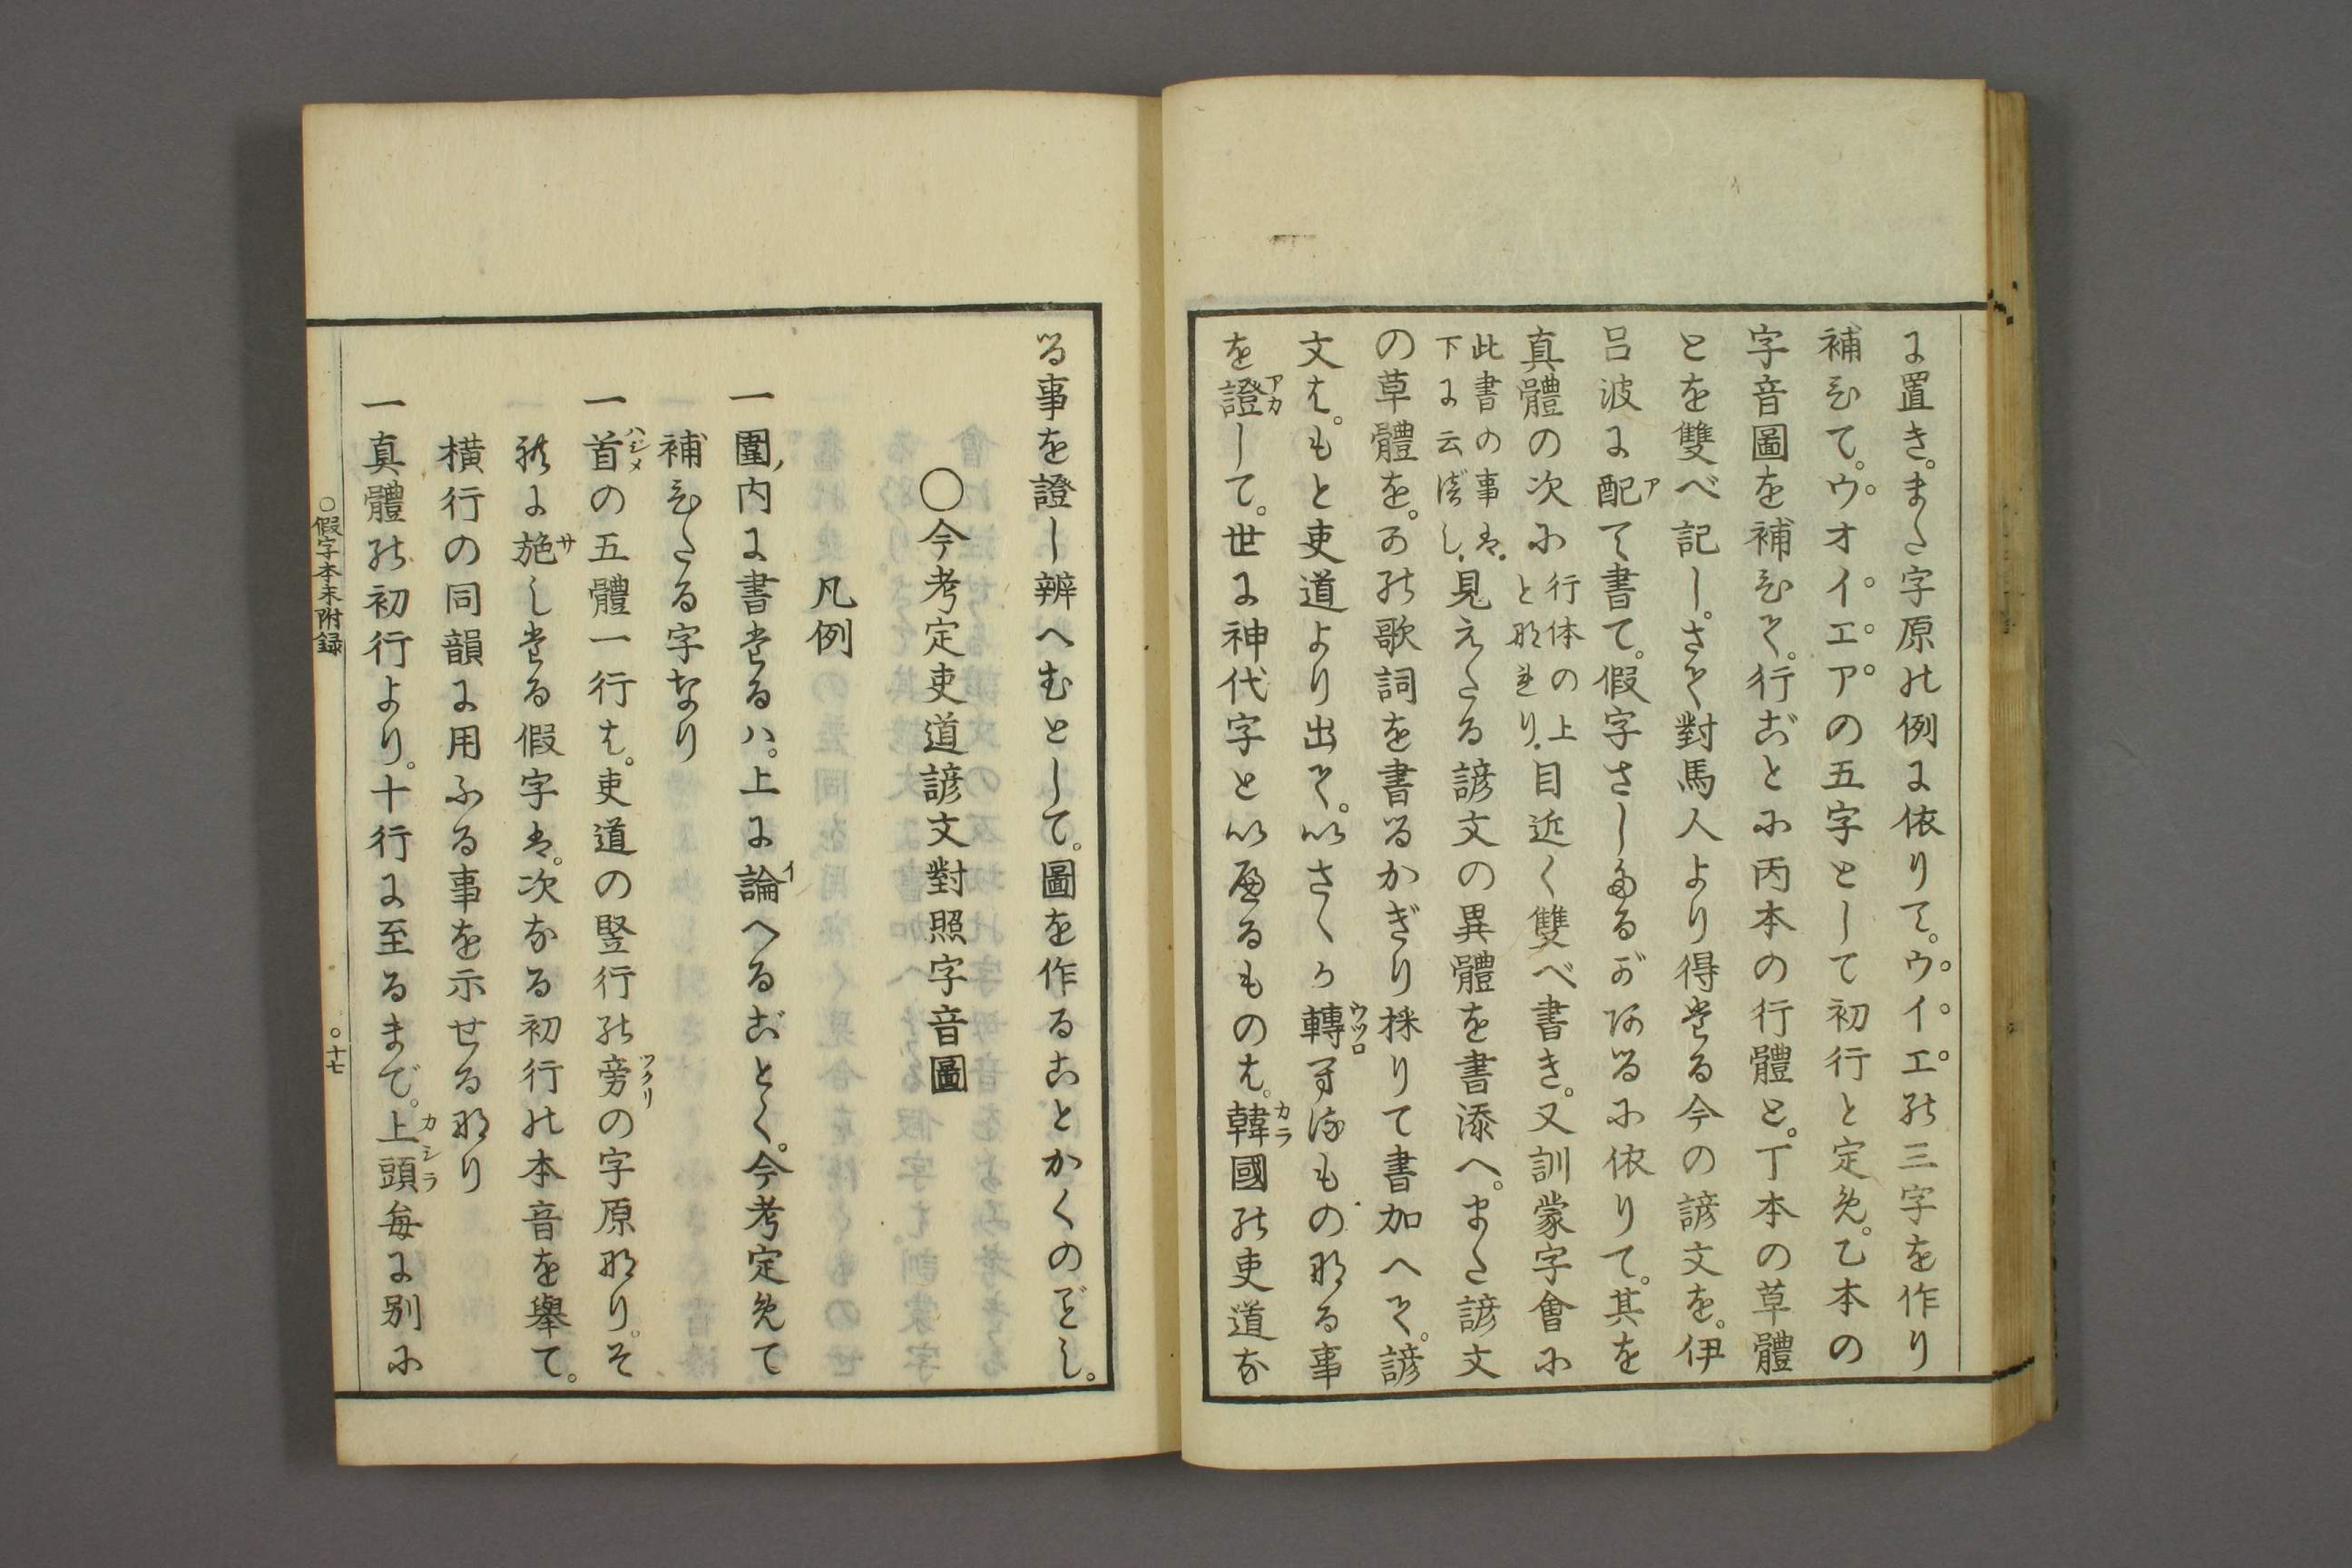 に置き。また字原の例に依りて。ウ。イ。エ。の三字を作り
補ひて。ウ。オイ。エ。ア。の五字として初行と定め。乙本の
字音圖を補ひて。行ごとに丙本の行體と。丁本の草體
とを雙べ記し。さて對馬人より得たる今の諺文を。伊
呂波に配て書て。假字さしたるがあるに依りて。其を
真體の次に行体の上となれり.目近く雙べ書き。又訓蒙字會に
此書の事は.下に云べし.見えたる諺文の異體を書添へ。また諺文
の草體を。かの歌詞を書るかぎり採りて書加へて。諺
文は。もと吏道より出て。いさゝか轉れるものなる事
を證して。世に神代字といへるものは。韓國の吏道な
る事を證し辨へむとして。圖を作ることかくのごとし。
〇今考定吏道諺文對照字音圖
凡例
一圍内に書たるハ。上に論へるごとく。今考定めて
補ひたる字なり
一首の五體一行は。吏道の竪行の旁の字原なり。そ
れに施したる假字は。次なる初行の本音を擧て。
横行の同韻に用ふる事を示せるなり
一真體の初行より。十行に至るまで。上頭毎に別に
〇假字本末附録
〇十七